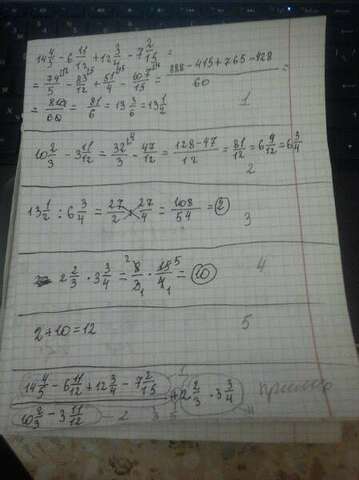 14 4/5 - 6 11/12 + 12 3/4 - 7 2/15 =
= 74/5 - 83/12 + 51/4 - 107/15 = (888 - 415 + 765 - 428)/60 =
= 810/60 = 81/6 = 13 3/6 = 13 1/2
1
10 2/3 - 3 11/12 = 32/3 - 47/12 = (128-47)/12 = 81/12 = 6 9/12 = 6 3/4
2
13 1/2 : 6 3/4 = 27/2 : 27/4 = 108/54 = 2
3
2 2/3 · 3 3/4 = 8/3 · 15/4 = 10
4
2 + 10 = 12
5
(14 4/5 - 6 11/12 + 12 3/4 - 7 2/15)/(10 2/3 - 3 11/12) + 2 2/3 · 3 3/4